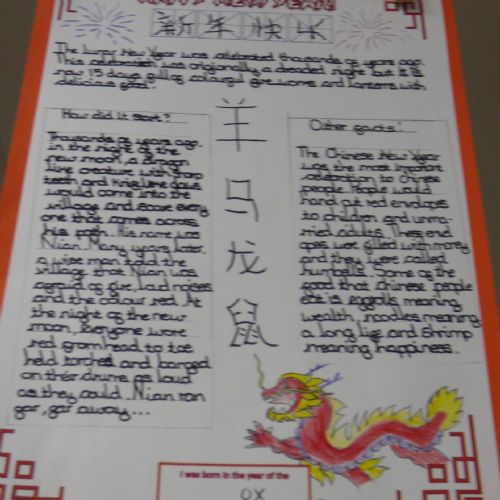 HAPPY NEW YEAR!
新年快乐
The Lunar New Year was celebrated thousands of years ago.
This celebration was originally a dreaded night but it is
now 15 days full of colourful fire works and lanterns with
delicious food.
How did it start?
Thousands of years ago,
in the night of the
new moon, a dragon
like creature with sharp
teeth and knife like claws
would come into the
village and scare every
one that comes across
his path. His name was
Nian. Many years later,
a wise man told the
village that Nian was
afraid of fire, loud noises
and the colour red. At
the night of the new
moon, everyone wore
red from head to toe
held torches and banged
on their drums as loud
as they could. Nian ran
far, far away...
羊
马
龙
鼠
Other facts!
The Chinese New Year
was the most important
celebration to Chinese
people. People would
hand out red envelopes
to children and unma-
rried adults. These envel-
opes were filled with money
and they were called
Some of the
food that Chinese people
eat is eggrolls meaning
wealth, noodles meaning
a long life and shrimp
meaning happiness.
I was born in the year of the
OX